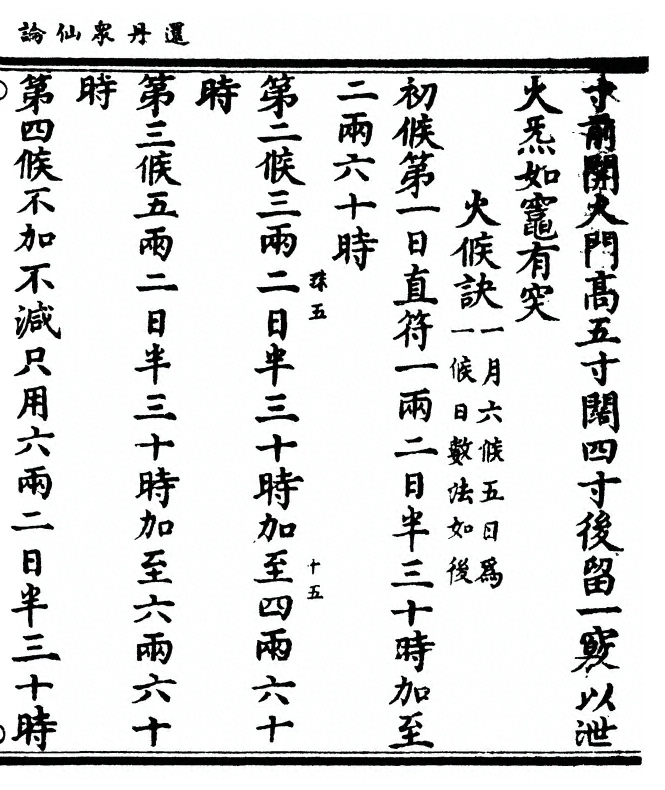 還丹衆仙論
寸前開火門高五寸闊四寸後留一竅以泄
火炁如竈有突
火候訣
一月六候五日爲
一候日數法如後
初候第一日直符一兩二日半三十時加至
二兩六十時
珠五
十五
第二候三兩二日半三十時加至四兩六十
時
第三候五兩二日半三十時加至六兩六十
時
第四候不加不減只用六兩二日半三十時